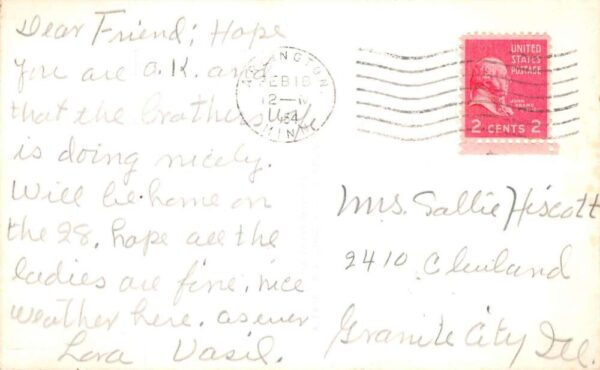 Dear Friend; Hope
you are O.K. and
that the brothers
is doing nicely.
Will be home on
the 28. hope all the
ladies are fine. nice
weather here. as ever
Lora Vasil.
FEB 18
12—M
MINN.
UNITED
STATES
POSTAGE
JOHN
ADAMS
2 CENTS 2
Mrs. Sallie Hiscott
2410 Cleiland
Granite City Ill.